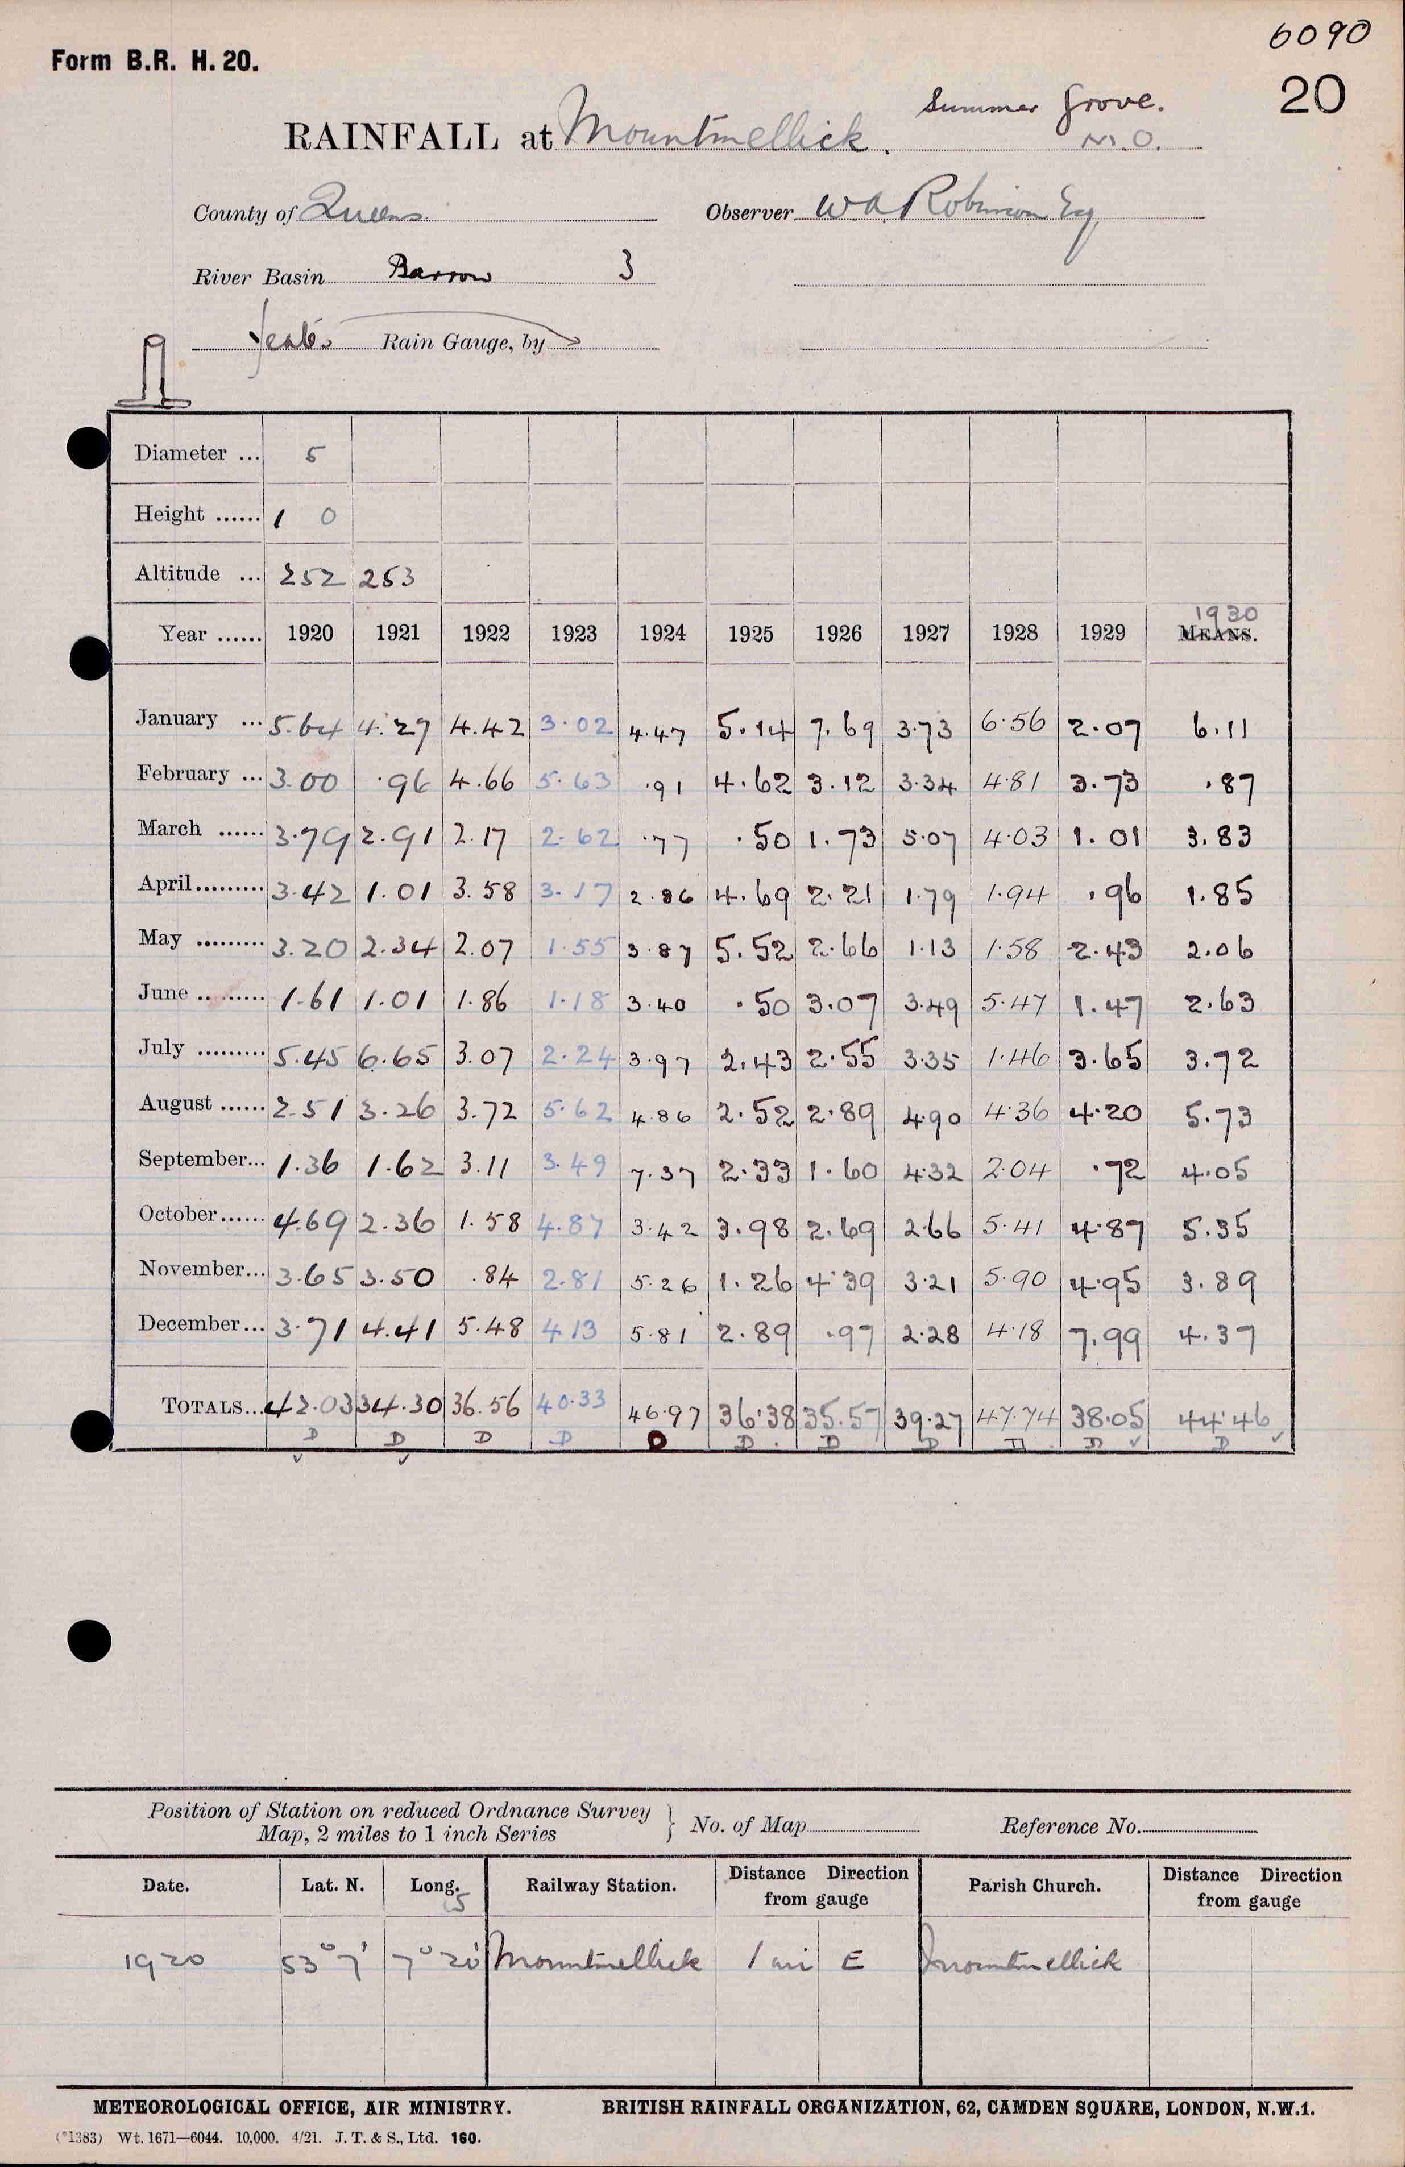 6090
Form B.R. H. 20.
20
Summer Grove.
RAINFALL at Mountmellick. M.O.
County of Queens. Observer W A Robinson Esq
River Basin Barrow 3
Rain Gauge, by
Diameter ... 5
Height ...... 1 0
Altitude ... 252 253
1930
Year ...... 1920 1921 1922 1923 1924 1925 1926 1927 1928 1929 MEANS.
January ... 5.64 4.27 4.42 3.02 4.47 5.14 7.69 3.73 6.56 2.07 6.11
February ... 3.00 .96 4.66 5.63 .91 4.62 3.12 3.34 4.81 3.73 .87
March ...... 3.79 2.91 2.17 2.62 .77 .50 1.73 5.07 4.03 1.01 3.83
April......... 3.42 1.01 3.58 3.17 2.86 4.69 2.21 1.79 1.94 .96 1.85
May ......... 3.20 2.34 2.07 1.55 3.87 5.52 2.66 1.13 1.58 2.43 2.06
June ......... 1.61 1.01 1.86 1.18 3.40 .50 3.07 3.49 5.47 1.47 2.63
July ......... 5.45 6.65 3.07 2.24 3.97 2.43 2.55 3.35 1.46 3.65 3.72
August ...... 2.51 3.26 3.72 5.62 4.86 2.52 2.89 4.90 4.36 4.20 5.73
September... 1.36 1.62 3.11 3.49 7.37 2.33 1.60 4.32 2.04 .72 4.05
October...... 4.69 2.36 1.58 4.87 3.42 3.98 2.69 2.66 5.41 4.87 5.35
November... 3.65 3.50 .84 2.81 5.26 1.26 4.39 3.21 5.90 4.95 3.89
December... 3.71 4.41 5.48 4.13 5.81 2.89 .97 2.28 4.18 7.99 4.37
TOTALS... 42.03 34.30 36.56 40.33 46.97 36.38 35.57 39.27 47.74 38.05 44.46
D D D D D D D D D D D
Position of Station on reduced Ordnance Survey
Map, 2 miles to 1 inch Series } No. of Map Reference No.
Date. Lat. N. Long. Railway Station. Distance Direction from gauge Parish Church. Distance Direction from gauge
5
1920 53° 7' 7° 20' Mountmellick 1 mi E Mountmellick
METEOROLOGICAL OFFICE, AIR MINISTRY. BRITISH RAINFALL ORGANIZATION, 62, CAMDEN SQUARE, LONDON, N.W.1.
(*1383) Wt. 1671—6044. 10,000. 4/21. J. T. & S., Ltd. 160.